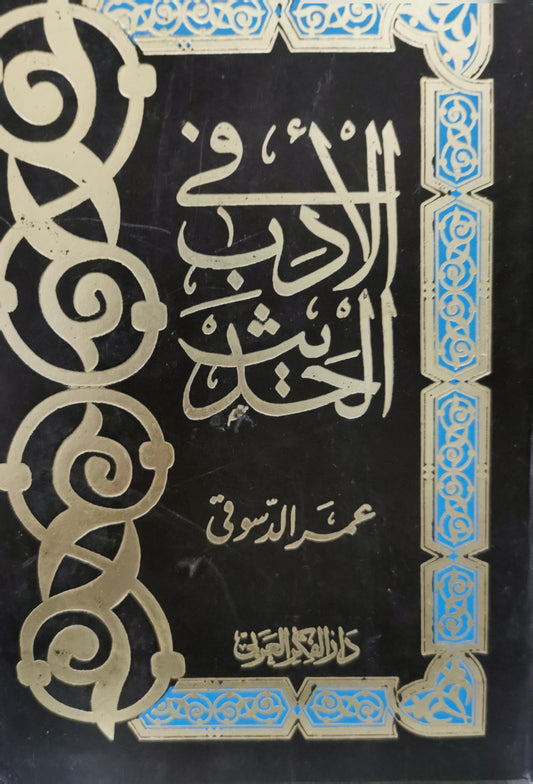 في الأدب
الحديث
عمر الدسوقي
دار الفكر العربي